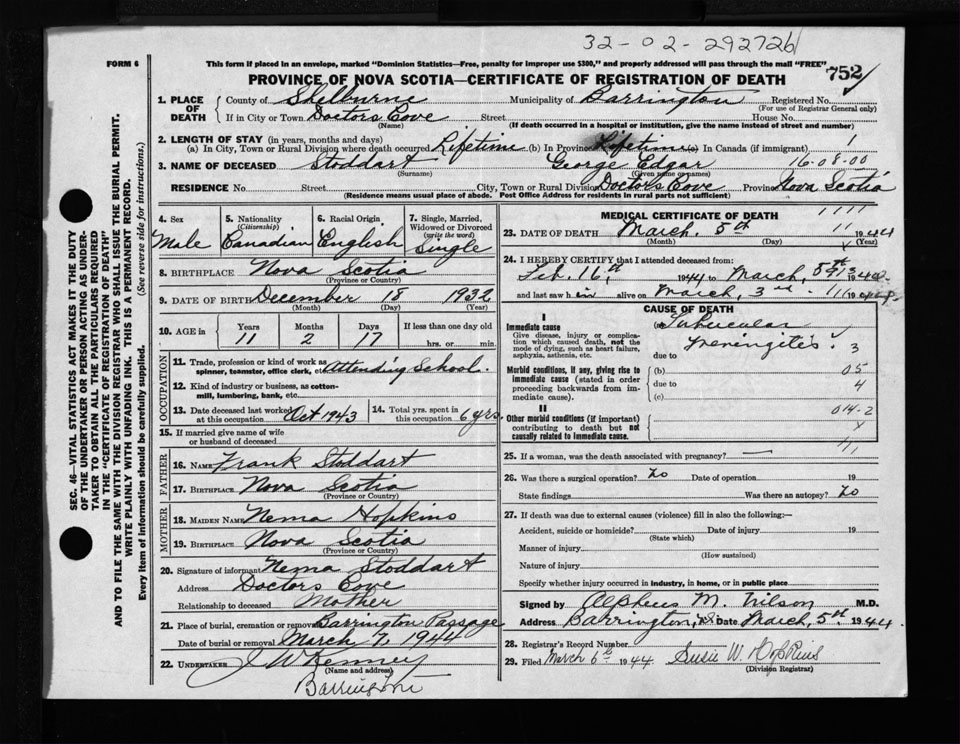 32-02-292726
FORM 6
This form if placed in an envelope, marked "Dominion Statistics—Free, penalty for improper use $300," and properly addressed will pass through the mail "FREE"
752
PROVINCE OF NOVA SCOTIA—CERTIFICATE OF REGISTRATION OF DEATH
1. PLACE OF DEATH
County of Shelburne Municipality of Barrington Registered No.
(For use of Registrar General only)
If in City or Town Doctors Cove Street House No.
(Name) (If death occurred in a hospital or institution, give the name instead of street and number)
2. LENGTH OF STAY (in years, months and days)
(a) In City, Town or Rural Division where death occurred Lifetime (b) In Province Lifetime (c) In Canada (if immigrant) 1
3. NAME OF DECEASED Stoddart George Edgar 16-08-00
(Surname) (Given name or names)
RESIDENCE No. Street City, Town or Rural Division Doctors Cove Province Nova Scotia
(Residence means usual place of abode. Post Office Address for residents in rural parts not sufficient)
4. Sex
Male
5. Nationality
(Citizenship)
Canadian
6. Racial Origin
English
7. Single, Married,
Widowed or Divorced
(write the word)
Single
8. BIRTHPLACE Nova Scotia
(Province or Country)
9. DATE OF BIRTH December 18 1932
(Month) (Day) (Year)
10. AGE in
Years Months Days If less than one day old
11 2 17 hrs. or min.
OCCUPATION
11. Trade, profession or kind of work as
spinner, teamster, office clerk, etc. Attending School.
12. Kind of industry or business, as cotton-
mill, lumbering, bank, etc.
13. Date deceased last worked
at this occupation Oct 1943
14. Total yrs. spent in
this occupation 6 yrs.
15. If married give name of wife
or husband of deceased
FATHER
16. NAME Frank Stoddart
17. BIRTHPLACE Nova Scotia
(Province or Country)
MOTHER
18. MAIDEN NAME Nema Hopkins
19. BIRTHPLACE Nova Scotia
(Province or Country)
20. Signature of informant Nema Stoddart
Address Doctors Cove
Relationship to deceased Mother
21. Place of burial, cremation or removal Barrington Passage
Date of burial or removal March 7, 1944
22. UNDERTAKER J W Kenney
(Name and address)
Barrington
MEDICAL CERTIFICATE OF DEATH
1111
23. DATE OF DEATH March. 5th 11 1944
(Month) (Day) (Year)
24. I HEREBY CERTIFY that I attended deceased from:
Feb. 16, 1944 to March, 5th
and last saw h im alive on March, 3rd
CAUSE OF DEATH
I
Immediate cause
Give disease, injury or complication which caused death, not the mode of dying, such as heart failure, asphyxia, asthenia, etc.
(a) Tubucular
Meningites. 3
due to
Morbid conditions, if any, giving rise to immediate cause (stated in order proceeding backwards from immediate cause).
(b) 05
due to 4
(c)
II
Other morbid conditions (if important) contributing to death but not causally related to immediate cause.
014-2
x
111
25. If a woman, was the death associated with pregnancy? —
26. Was there a surgical operation? No Date of operation 19
State findings Was there an autopsy? No
27. If death was due to external causes (violence) fill in also the following:—
Accident, suicide or homicide? Date of injury 19
(State which)
Manner of injury
(How sustained)
Nature of injury
Specify whether injury occurred in industry, in home, or in public place
Signed by Alpheus M. Wilson M.D.
Address Barrington, N.S. Date March, 5th 1944
28. Registrar's Record Number
29. Filed March 6th 1944 Susie W. Hopkins
(Division Registrar)
SEC. 46—VITAL STATISTICS ACT MAKES IT THE DUTY
OF THE UNDERTAKER OR PERSON ACTING AS UNDER-
TAKER TO OBTAIN ALL THE PARTICULARS REQUIRED
IN THE "CERTIFICATE OF REGISTRATION OF DEATH"
AND TO FILE THE SAME WITH THE DIVISION REGISTRAR WHO SHALL ISSUE THE BURIAL PERMIT.
WRITE PLAINLY WITH UNFADING INK. THIS IS A PERMANENT RECORD.
Every item of information should be carefully supplied. (See reverse side for instructions.)